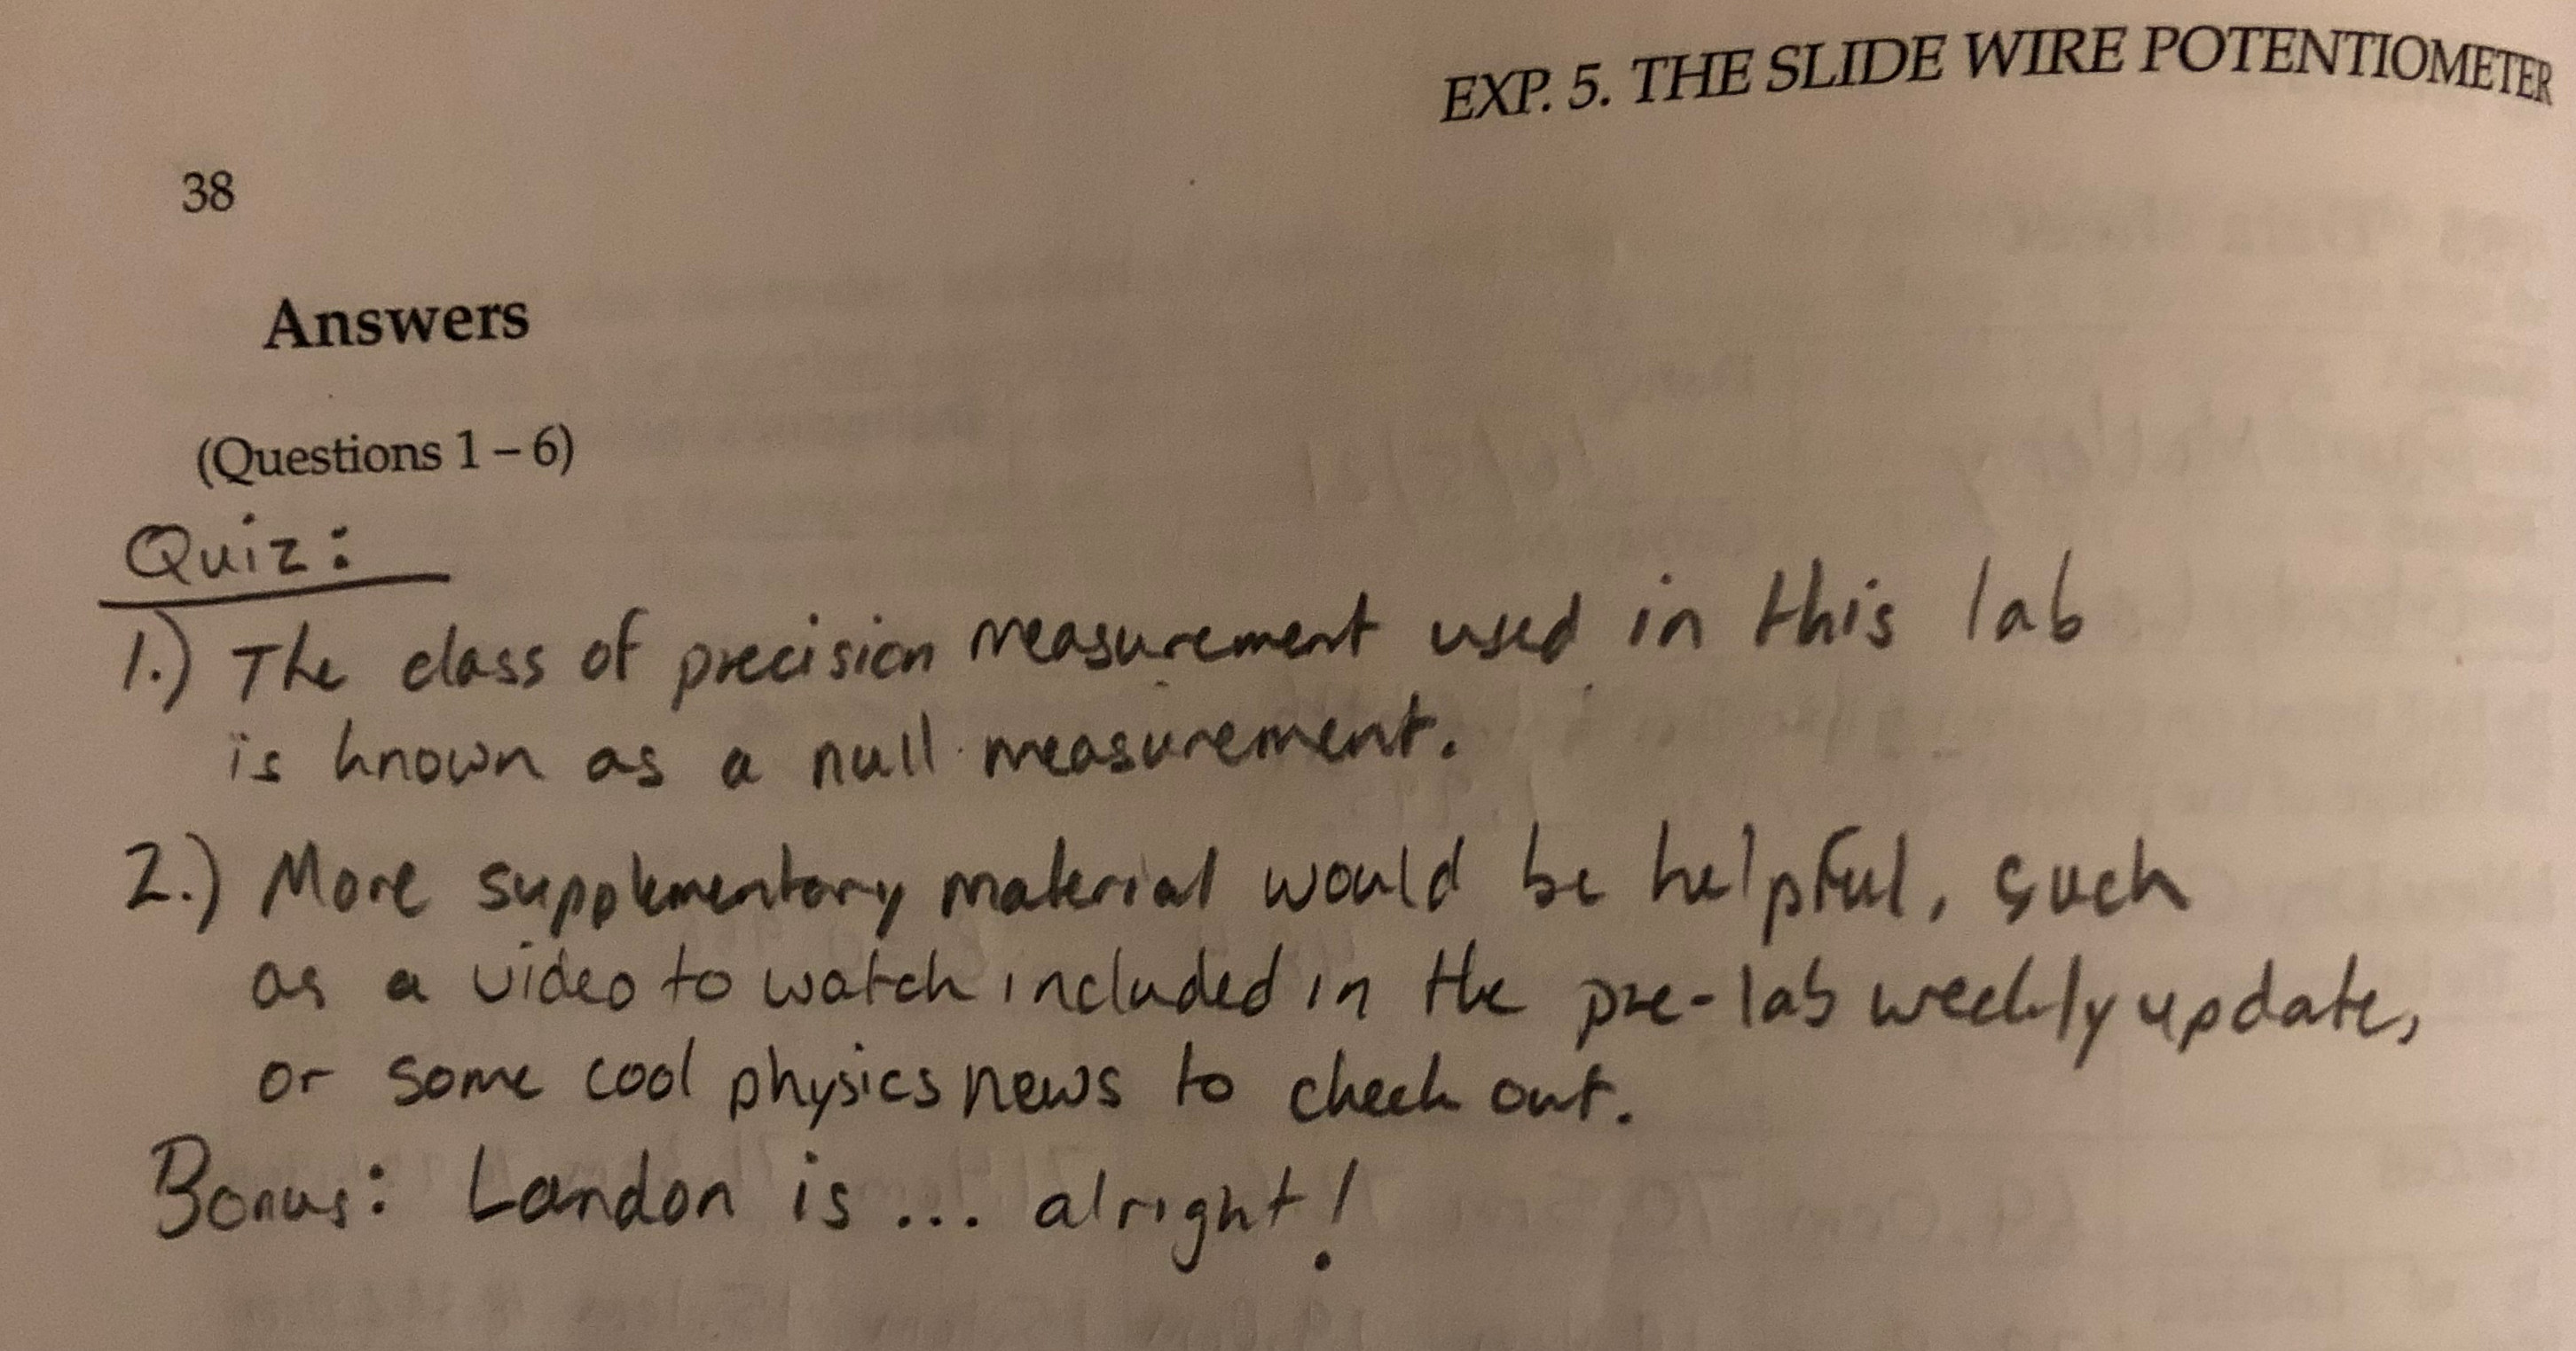 EXP. 5. THE SLIDE WIRE POTENTIOMETER
38
Answers
(Questions 1 – 6)
Quiz:
1.) The class of precision measurement used in this lab
is known as a null measurement.
2.) More supplementary material would be helpful, such
as a video to watch included in the pre-lab weekly update,
or some cool physics news to check out.
Bonus: Landon is ... alright!